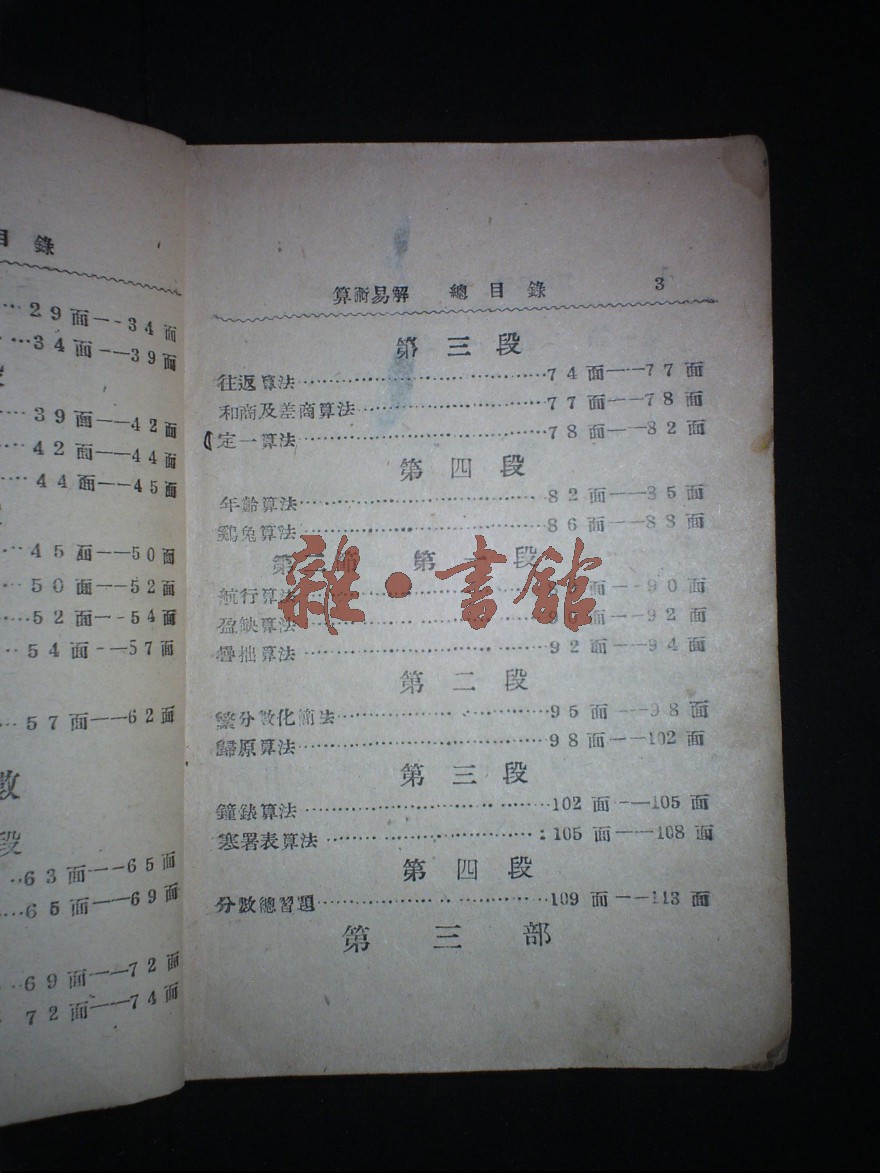 目錄
29面——34面
34面——39面
39——42面
42面——44面
44面——45面
45面——50面
50面——52面
52面——54面
54面——57面
57面——62面
數
段
63面——65面
65面——69面
69面——72面
72面——74面
算術易解 總目錄 3
第三段
往返算法……74面——77面
和商及差商算法……77面——78面
定一算法……78面——82面
第四段
年齡算法……82面——85面
鷄兔算法……86面——88面
第一段
航行算法……——90面
盈缺算法……——92面
算法……92面——94面
第二段
繁分數化簡法……95面——98面
歸原算法……98面——102面
第三段
鐘錶算法……102面——105面
寒署表算法……105面——108面
第四段
分數總習題……109面——113面
第三部
雜·書館